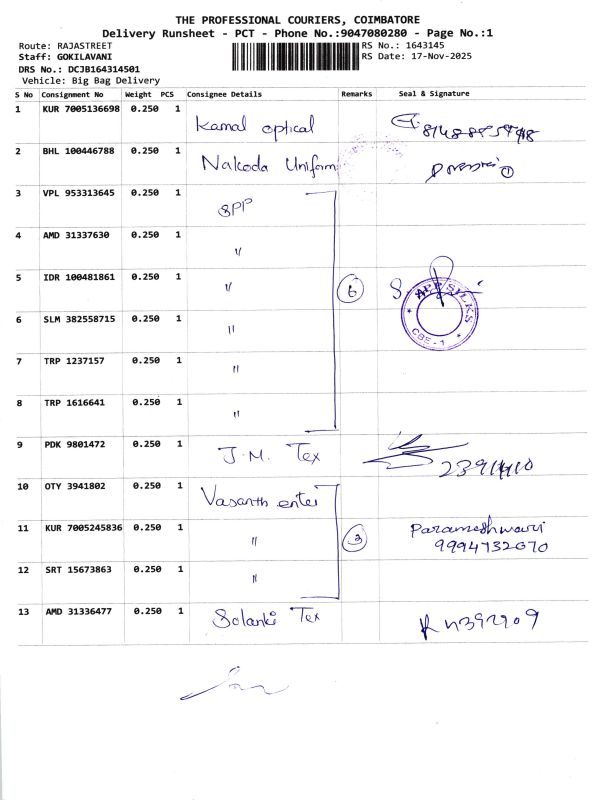 THE PROFESSIONAL COURIERS, COIMBATORE
Delivery Runsheet - PCT - Phone No.:9047080280 - Page No.:1
Route: RAJASTREET
RS No.: 1643145
Staff: GOKILAVANI
RS Date: 17-Nov-2025
DRS No.: DCJB164314501
Vehicle: Big Bag Delivery
S No Consignment No Weight PCS Consignee Details Remarks Seal & Signature
1 KUR 7005136698 0.250 1 Kamal optical
2 BHL 100446788 0.250 1 Nakoda Uniform
3 VPL 953313645 0.250 1 SPP
4 AMD 31337630 0.250 1 "
5 IDR 100481861 0.250 1 " 6
SILKS
CBE-1
6 SLM 382558715 0.250 1 "
7 TRP 1237157 0.250 1 "
8 TRP 1616641 0.250 1 "
9 PDK 9801472 0.250 1 J.M. Tex
10 OTY 3941802 0.250 1 Vasanth enter
11 KUR 7005245836 0.250 1 " 3 Parameshwari
9994732070
12 SRT 15673863 0.250 1 "
13 AMD 31336477 0.250 1 Solanki Tex